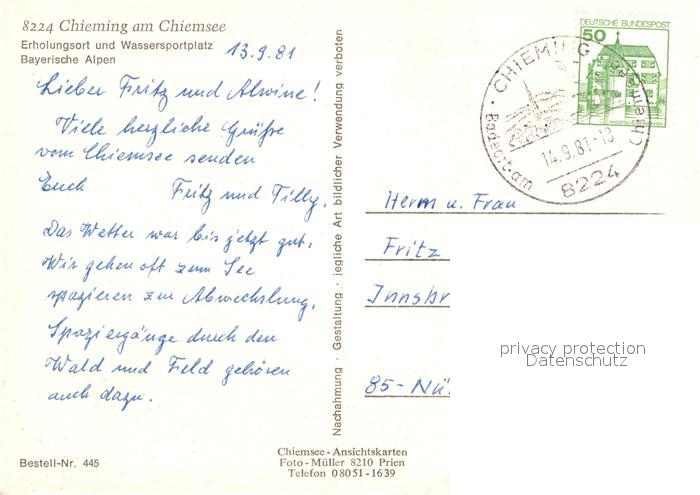 8224 Chieming am Chiemsee
Erholungsort und Wassersportplatz
Bayerische Alpen
13.9.81
Lieber Fritz und Alwine!
Viele herzliche Grüße
vom Chiemsee senden
Euch Fritz und Tilly.
Das Wetter war bis jetzt gut.
Wir gehen oft zum See
spazieren zur Abwechslung.
Spaziergänge durch den
Wald und Feld gehören
auch dazu.
Bestell-Nr. 445
Nachahmung · Gestaltung · jegliche Art bildlicher Verwendung verboten
Chiemsee-Ansichtskarten
Foto-Müller 8210 Prien
Telefon 08051-1639
DEUTSCHE BUNDESPOST
50
CHIEMING
Badeort am Chiemsee
14.9.81-18
8224
Herrn u. Frau
Fritz
Innsbr
85-Nü
privacy protection
Datenschutz